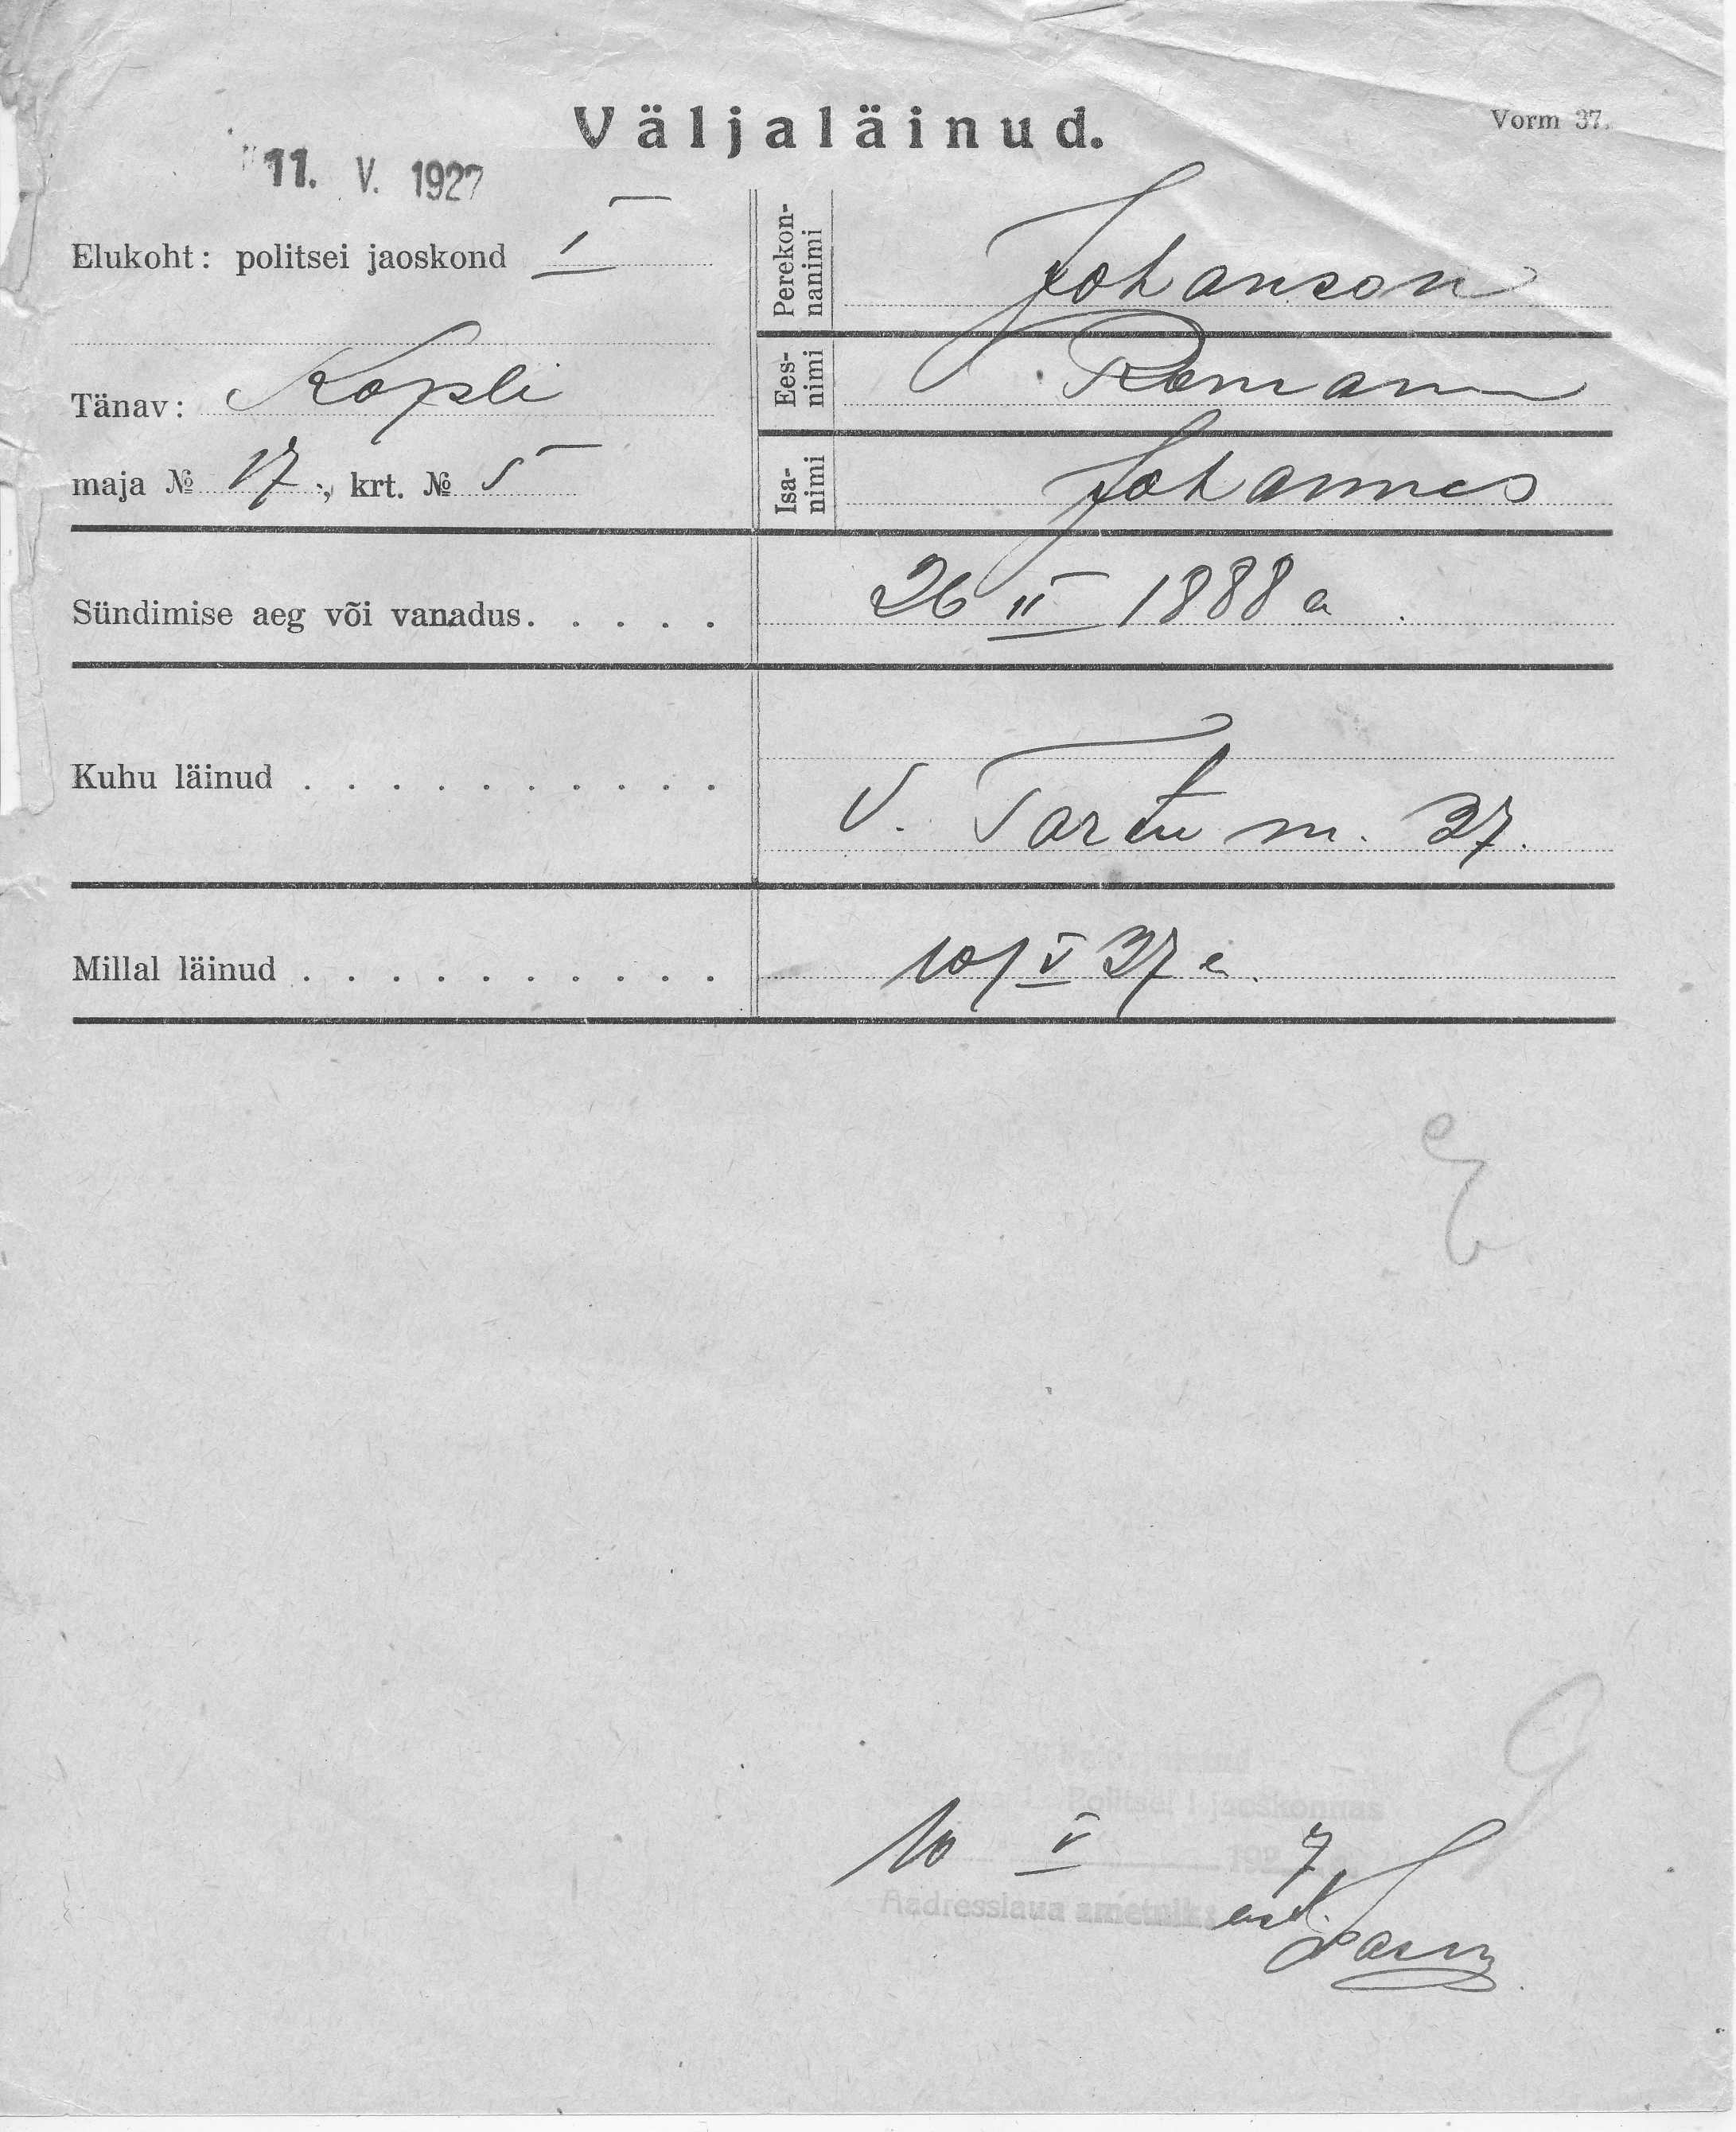 Väljaläinud.
Vorm 37.
11. V. 1927
Elukoht: politsei jaoskond I
Tänav: Kopli
maja № 17, krt. № 5
Perekon-
nanimi
Johanson
Ees-
nimi
Roman
Isa-
nimi
Johannes
Sündimise aeg või vanadus. . . . . 26 II 1888 a
Kuhu läinud . . . . . . . . . . V. Tartu m. 37.
Millal läinud . . . . . . . . . . 10/V 27 a.
Politsei I jaoskonnas
10 V 192 7
Aadresslaua ametnik: